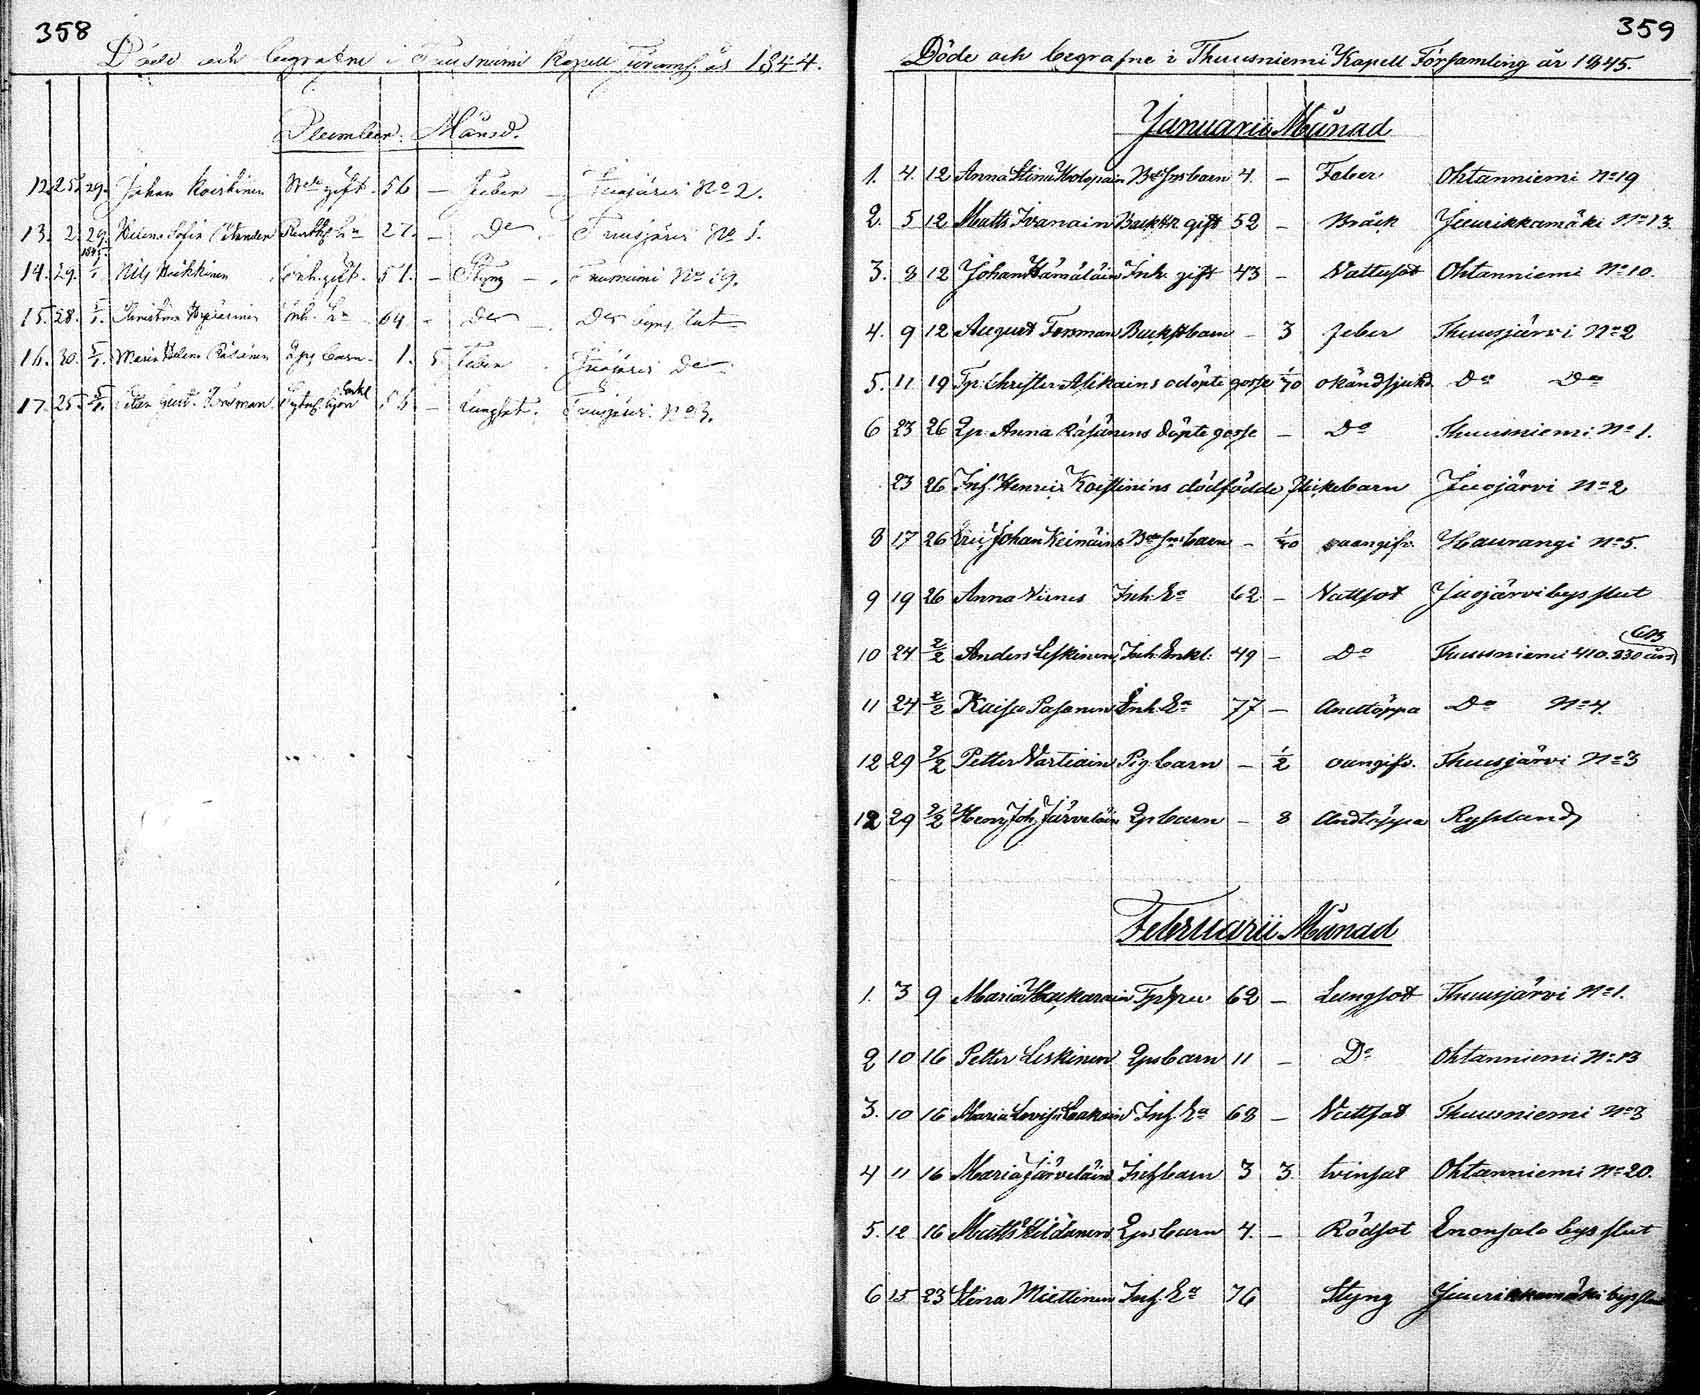 358
Döde och begrafne i Tuusniemi Kapell Församl. år 1844.
December Månad.
12. 25. 29. Johan Koistinen gift. 56 — Feber — Juojärvi No 2.
13. 2. 29. Helena Sofia Enka 27. — Do — Tuusjärvi No 1.
14. 29. 1/1 Nils Heikkinen Inh. gift. 51. — Styng — Tuusniemi No 19.
15. 28. 5/1. Christina Inh. Ea 64 — Do — Do bys slut
16. 30. 5/1. Maria Helena Räsänen Lps barn. 1. 5. Feber Juojärvi Do
17. 25. 5/1. Petter Gust. Forsman Enkl 56 — Lungsot. Tuusjärvi No 3.
359
Döde och begrafne i Thuusniemi Kapell Församling år 1845.
Januarii Månad
1. 4. 12 Anna Stina Holopain barn 4. — Feber Ohtanniemi No 19
2. 5 12 Matts Ivanain gift 52 — Bråck Juurikkamäki No 13.
3. 8 12 Johan Hämäläin Inh. gift 43 — Vattusot Ohtanniemi No 10.
4. 9 12 August Forsman barn — 3 Feber Thuusjärvi No 2
5. 11 19 Tp. Christer Asikains odöpte gosse 1/70 okänd sjukd. Do Do
6 23 26 Lp. Anna Räsänens döpte gosse — Do Thuusniemi No 1.
23 26 Inh. Henric Koistinens dödfödde flickebarn Juojärvi No 2
8 17 26 Eric Johan Keinäin barn — oangifv. Haurangi No 5.
9 19 26 Anna Virnes Inh. Ea 62 — Vattsot Juojärvi bys slut
10 24 2/2 Anders Leskinen Inh. Enkl. 49 — Do Thuusniemi
11 24 2/2 Kaisa Pasanen Inh. Ea 77 — Andtäppa Do No 4.
12 29 2/2 Petter Vartiain Pig. barn — 1/2 oangifv. Thuusjärvi No 3
12 29 2/2 Henr. Joh. Järveläin Lps barn — 8 Andtäppa Ryssland
Februarii Månad
1. 3 9 Maria Tp. fru 62 — Lungsot Thuusjärvi No 1.
2 10 16 Petter Leskinen Lps barn 11 — Do Ohtanniemi No 13
3. 10 16 Maria Lovisa Inh. Ea 68 — Vattsot Thuusniemi No 3
4 11 16 Maria Järveläin Inh. barn 3 3. tvinsot Ohtanniemi No 20.
5. 12 16 Matts Lps barn 4. — Rödsot Enonsalo bys slut
6 15 23 Stina Miettinen Inh. Ea 76 Styng Juurikkamäki bys slut